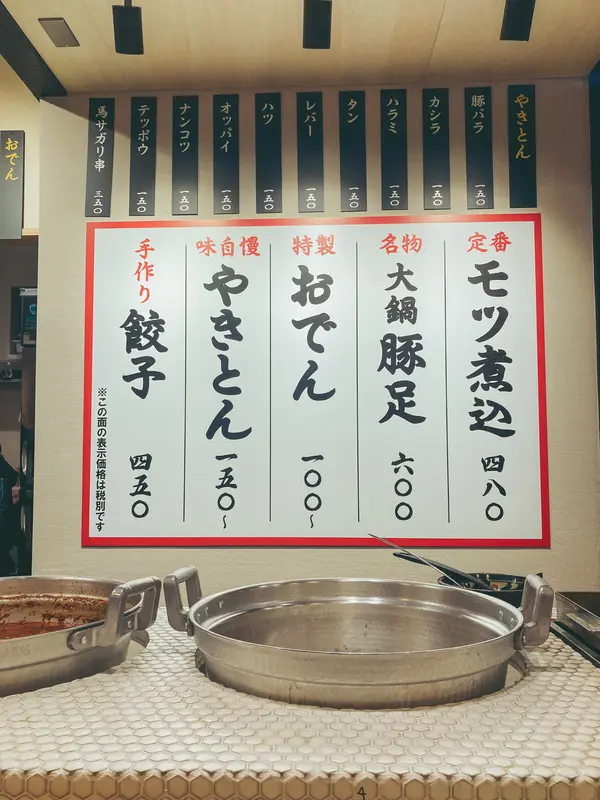 やきとん
豚バラ 一五〇
カシラ 一五〇
ハラミ 一五〇
タン 一五〇
レバー 一五〇
ハツ 一五〇
オッパイ 一五〇
ナンコツ 一五〇
テッポウ 一五〇
馬サガリ串 三五〇
おでん
定番
モツ煮込 四八〇
名物
大鍋豚足 六〇〇
特製
おでん 一〇〇〜
味自慢
やきとん 一五〇〜
手作り
餃子 四五〇
※この面の表示価格は税別です
4